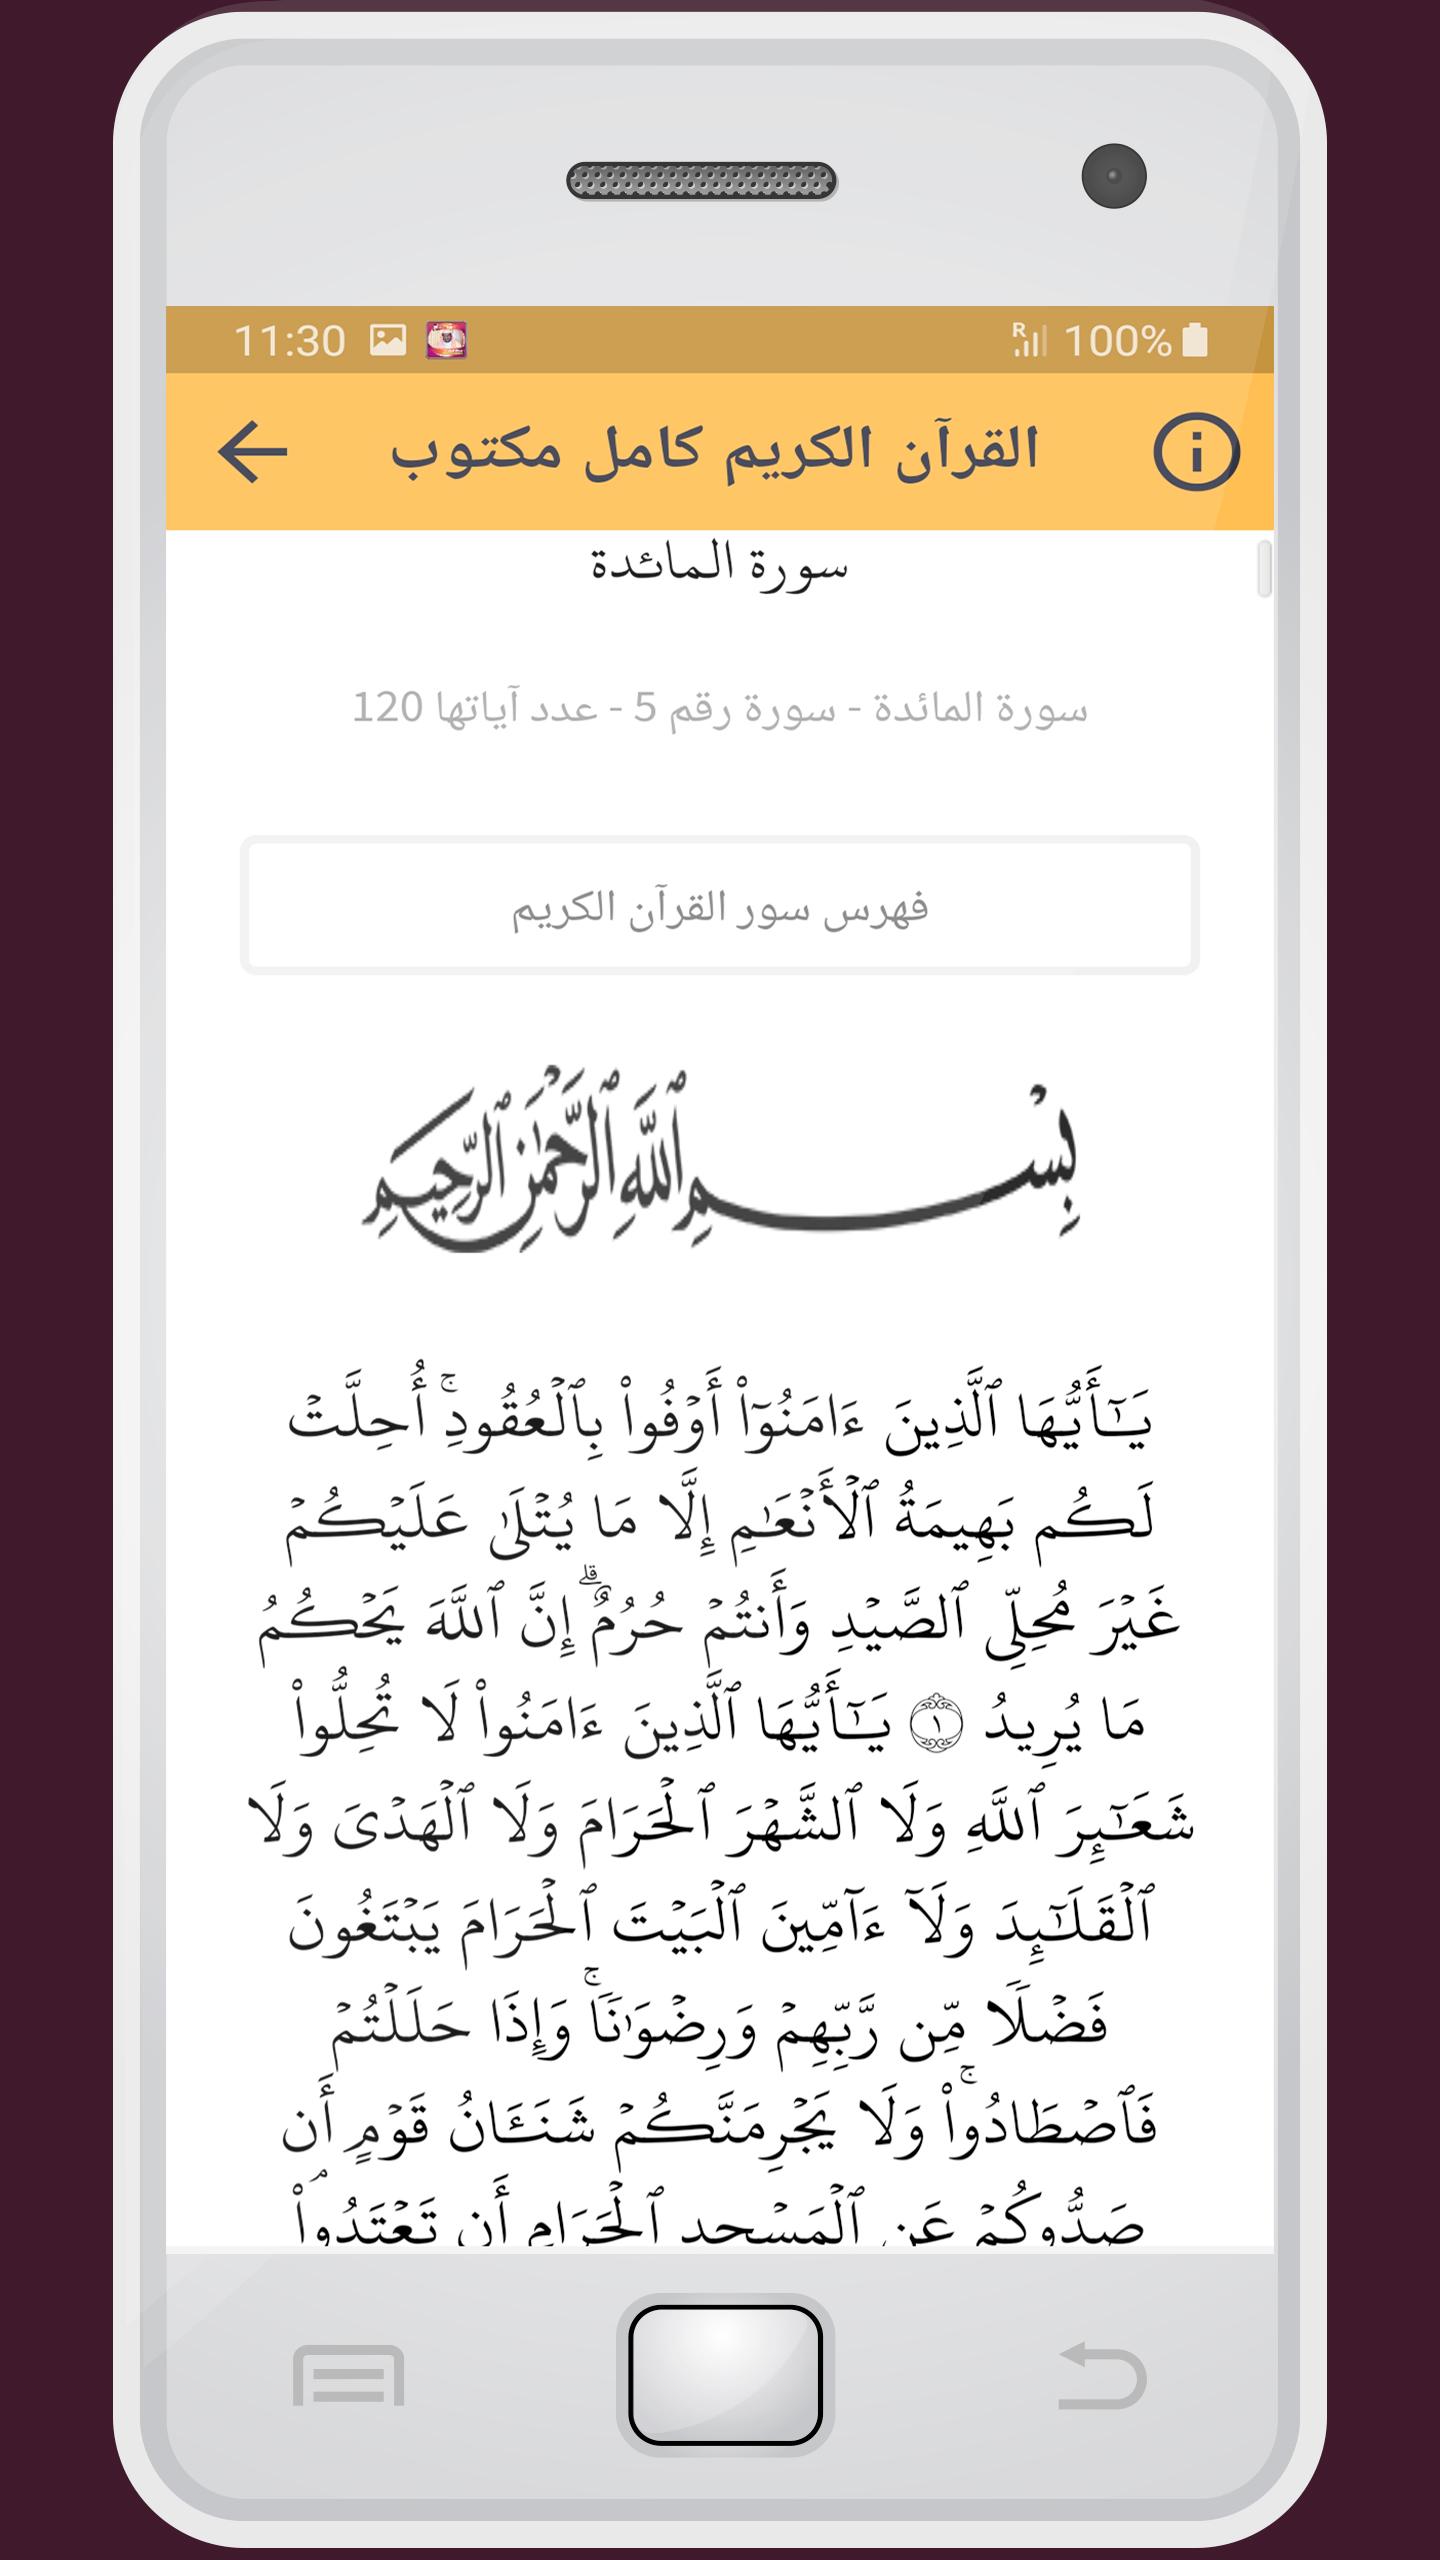 11:30
R 100%
القرآن الكريم كامل مكتوب
سورة المائدة
سورة المائدة - سورة رقم 5 - عدد آياتها 120
فهرس سور القرآن الكريم
بِسْمِ ٱللَّهِ ٱلرَّحْمَٰنِ ٱلرَّحِيمِ
يَـٰٓأَيُّهَا ٱلَّذِينَ ءَامَنُوٓا۟ أَوْفُوا۟ بِٱلْعُقُودِ ۚ أُحِلَّتْ
لَكُم بَهِيمَةُ ٱلْأَنْعَـٰمِ إِلَّا مَا يُتْلَىٰ عَلَيْكُمْ
غَيْرَ مُحِلِّى ٱلصَّيْدِ وَأَنتُمْ حُرُمٌ ۗ إِنَّ ٱللَّهَ يَحْكُمُ
مَا يُرِيدُ ١ يَـٰٓأَيُّهَا ٱلَّذِينَ ءَامَنُوا۟ لَا تُحِلُّوا۟
شَعَـٰٓئِرَ ٱللَّهِ وَلَا ٱلشَّهْرَ ٱلْحَرَامَ وَلَا ٱلْهَدْىَ وَلَا
ٱلْقَلَـٰٓئِدَ وَلَآ ءَآمِّينَ ٱلْبَيْتَ ٱلْحَرَامَ يَبْتَغُونَ
فَضْلًا مِّن رَّبِّهِمْ وَرِضْوَٰنًا ۚ وَإِذَا حَلَلْتُمْ
فَٱصْطَادُوا۟ ۚ وَلَا يَجْرِمَنَّكُمْ شَنَـَٔانُ قَوْمٍ أَن
صَدُّوكُمْ عَنِ ٱلْمَسْجِدِ ٱلْحَرَامِ أَن تَعْتَدُوا۟ ۘ